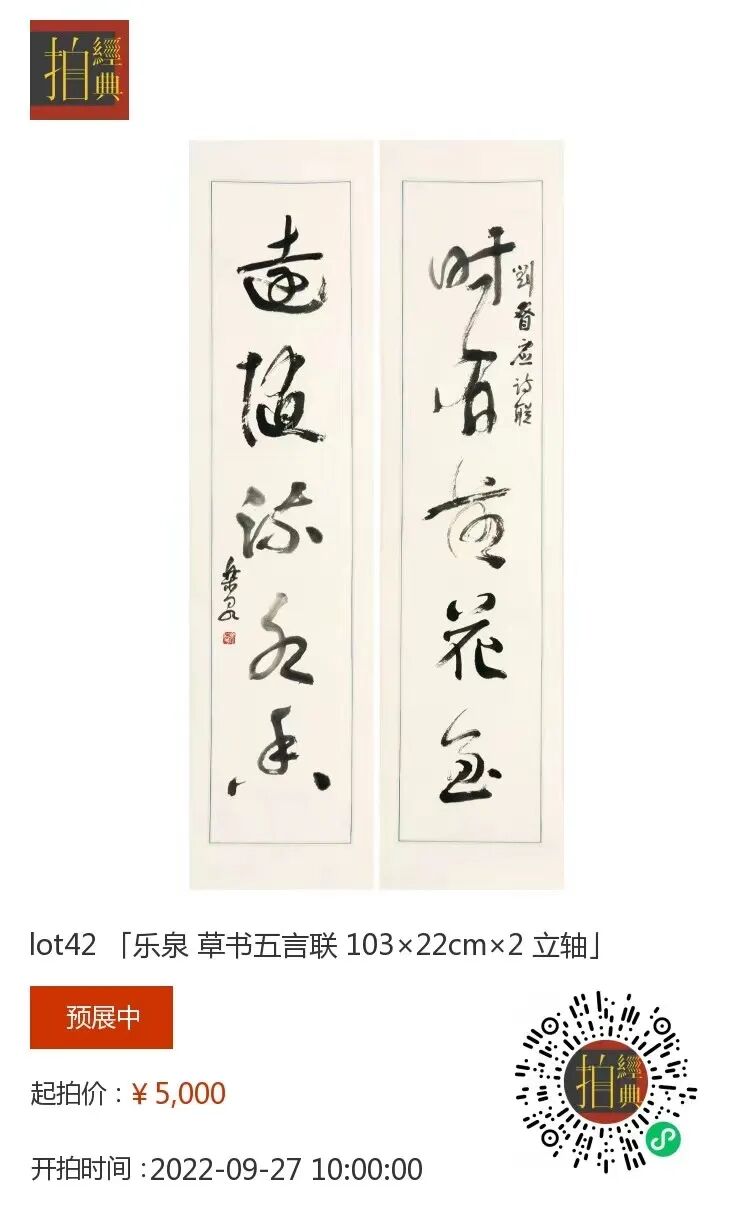 拍
經
典
时有落花至
劉眘虚诗联
远随流水香
乐泉
lot42 「乐泉 草书五言联 103×22cm×2 立轴」
预展中
起拍价：¥ 5,000
开拍时间：2022-09-27 10:00:00
拍
經
典